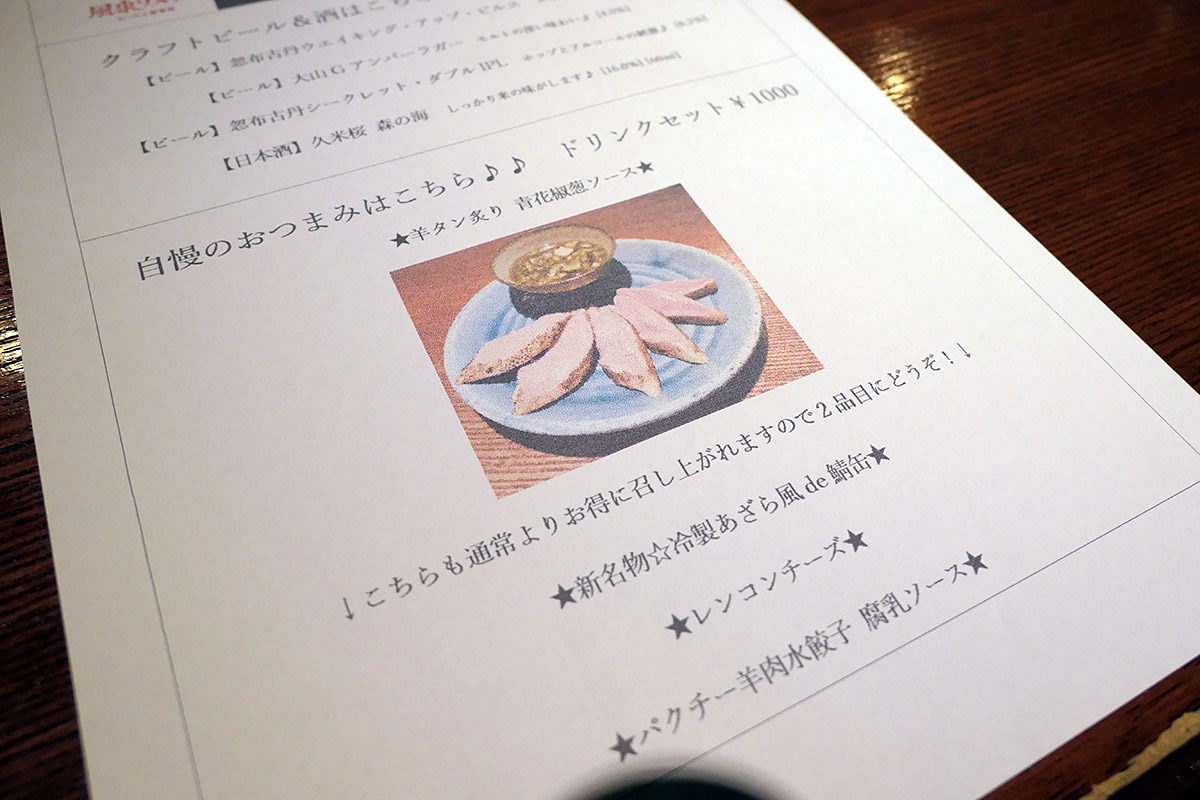 クラフトビール＆酒はこちら
【ビール】忽布古丹ウエイキング・アップ・ピルス
【ビール】大山Gアンバーラガー モルトの深い味わい♪ [4.5%]
【ビール】忽布古丹シークレット・ダブルIPL ホップとアルコールの刺激♪ [8.5%]
【日本酒】久米桜 森の海 しっかり米の味がします♪ [16.0%] [60ml]
自慢のおつまみはこちら♪♪ ドリンクセット￥1000
★羊タン炙り 青花椒葱ソース★
↓こちらも通常よりお得に召し上がれますので2品目にどうぞ！↓
★新名物☆冷製あざら風de鯖缶★
★レンコンチーズ★
★パクチー羊肉水餃子 腐乳ソース★